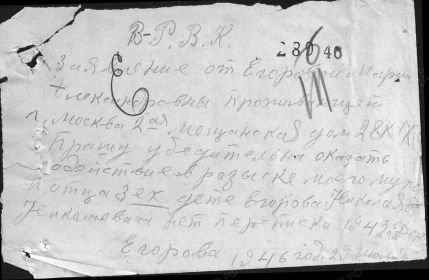 В-Р.В.К.
28040
Заявление от Егоровой Марии
Александровны проживающей
г. Москва 2ая Мещанская дом 28 К 17
Прашу убедительна оказать
содействие в разыске моего мужа
и отца 3ех дете Егорова Николая
Николаевича нет переписки 1942 г. Дек
Егорова 1946 год. 29 июля